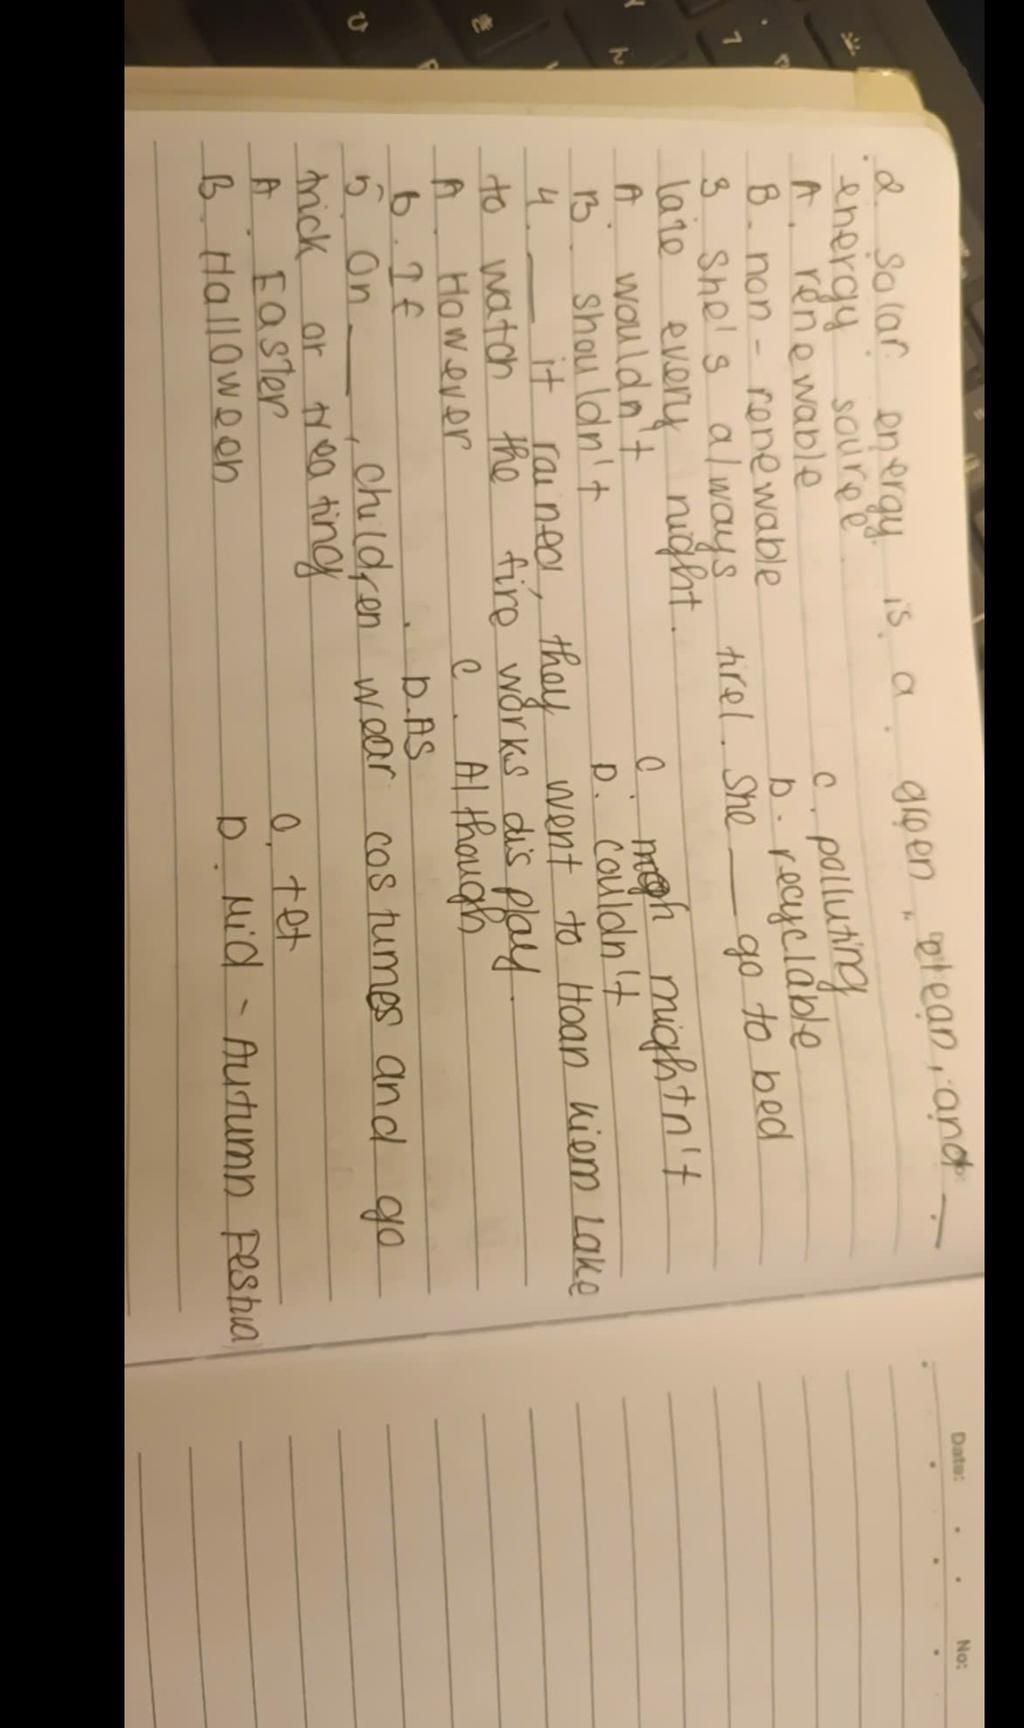 2. Solar energy is a green, clean, and __
energy source
A. renewable C. polluting
B. non-renewable D. recyclable
3 She's always tirel. She __ go to bed
late every night.
A wouldn't C. mightn't
B. shouldn't D. couldn't
4. __ it rained, they went to Hoan Kiem Lake
to watch the fire works display.
A. However C. Although
b. If D. As
5. On __, children wear costumes and go
trick or treating
A. Easter C. tet
B. Halloween D. Mid-Autumn Festival
Date: No: